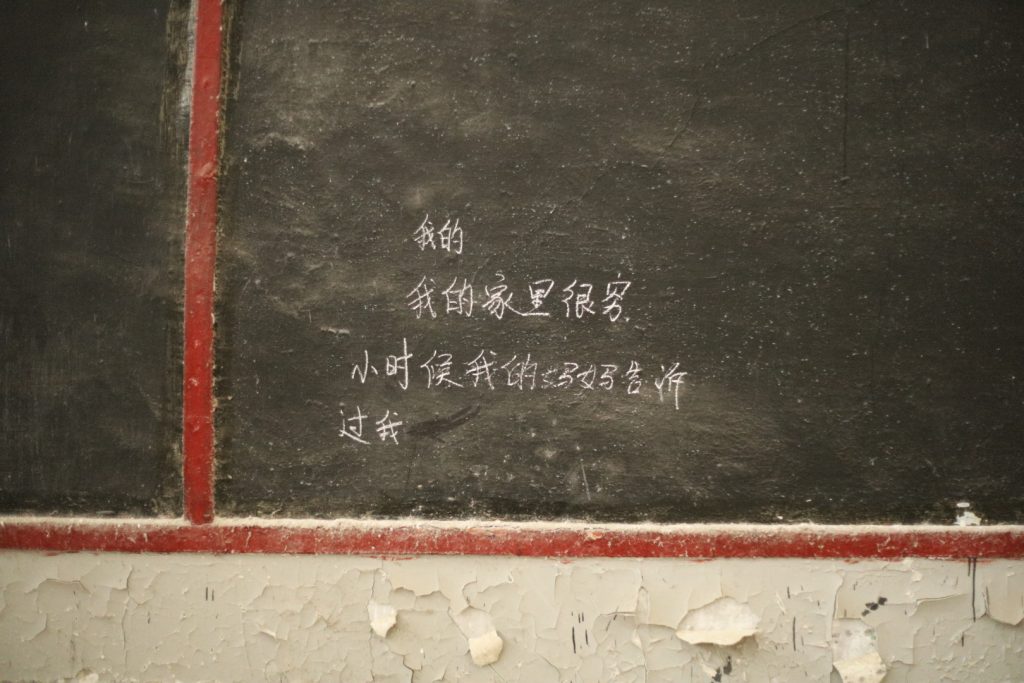 我的
我的家里很穷
小时候我的妈妈告诉
过我